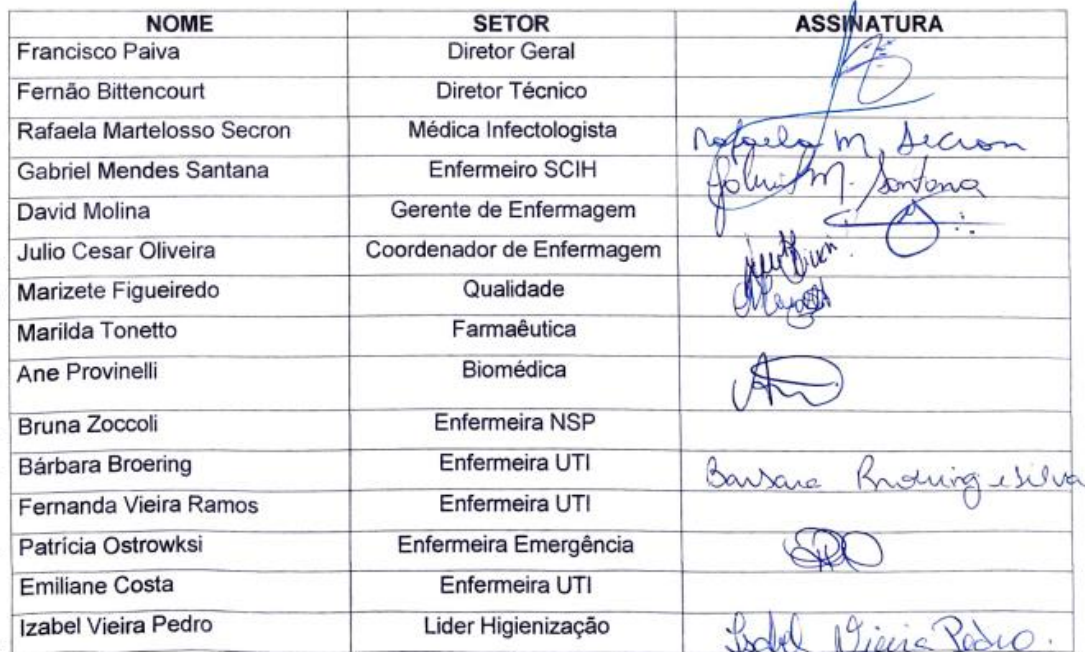 NOME SETOR ASSINATURA
Francisco Paiva Diretor Geral
Fernão Bittencourt Diretor Técnico
Rafaela Martelosso Secron Médica Infectologista Rafaela M. Secron
Gabriel Mendes Santana Enfermeiro SCIH Gabriel M. Santana
David Molina Gerente de Enfermagem
Julio Cesar Oliveira Coordenador de Enfermagem
Marizete Figueiredo Qualidade
Marilda Tonetto Farmaêutica
Ane Provinelli Biomédica
Bruna Zoccoli Enfermeira NSP
Bárbara Broering Enfermeira UTI Barbara Broering e Silva
Fernanda Vieira Ramos Enfermeira UTI
Patrícia Ostrowksi Enfermeira Emergência
Emiliane Costa Enfermeira UTI
Izabel Vieira Pedro Lider Higienização Izabel Vieira Pedro.